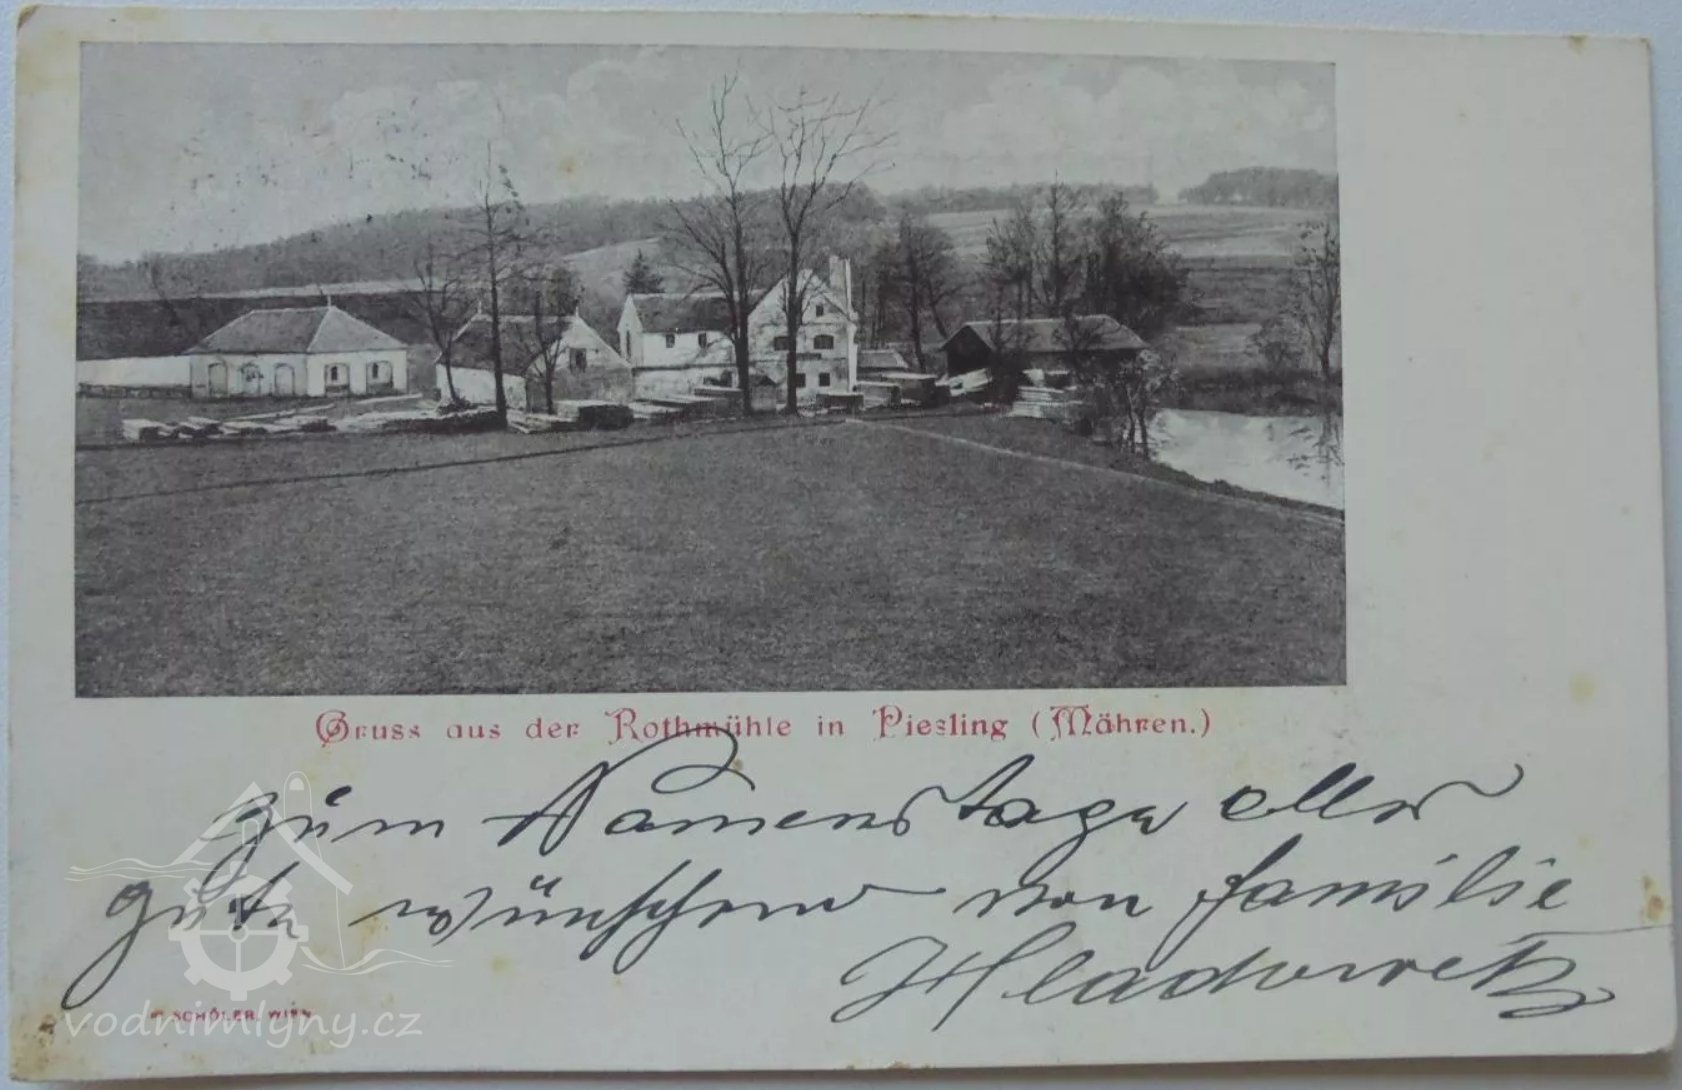 Gruss aus der Rothmühle in Piesling (Mähren.)
Zum Namenstage alles
gute wünschen von Familie
Hladowetz
SCHÖLER, WIEN
vodnimlyny.cz